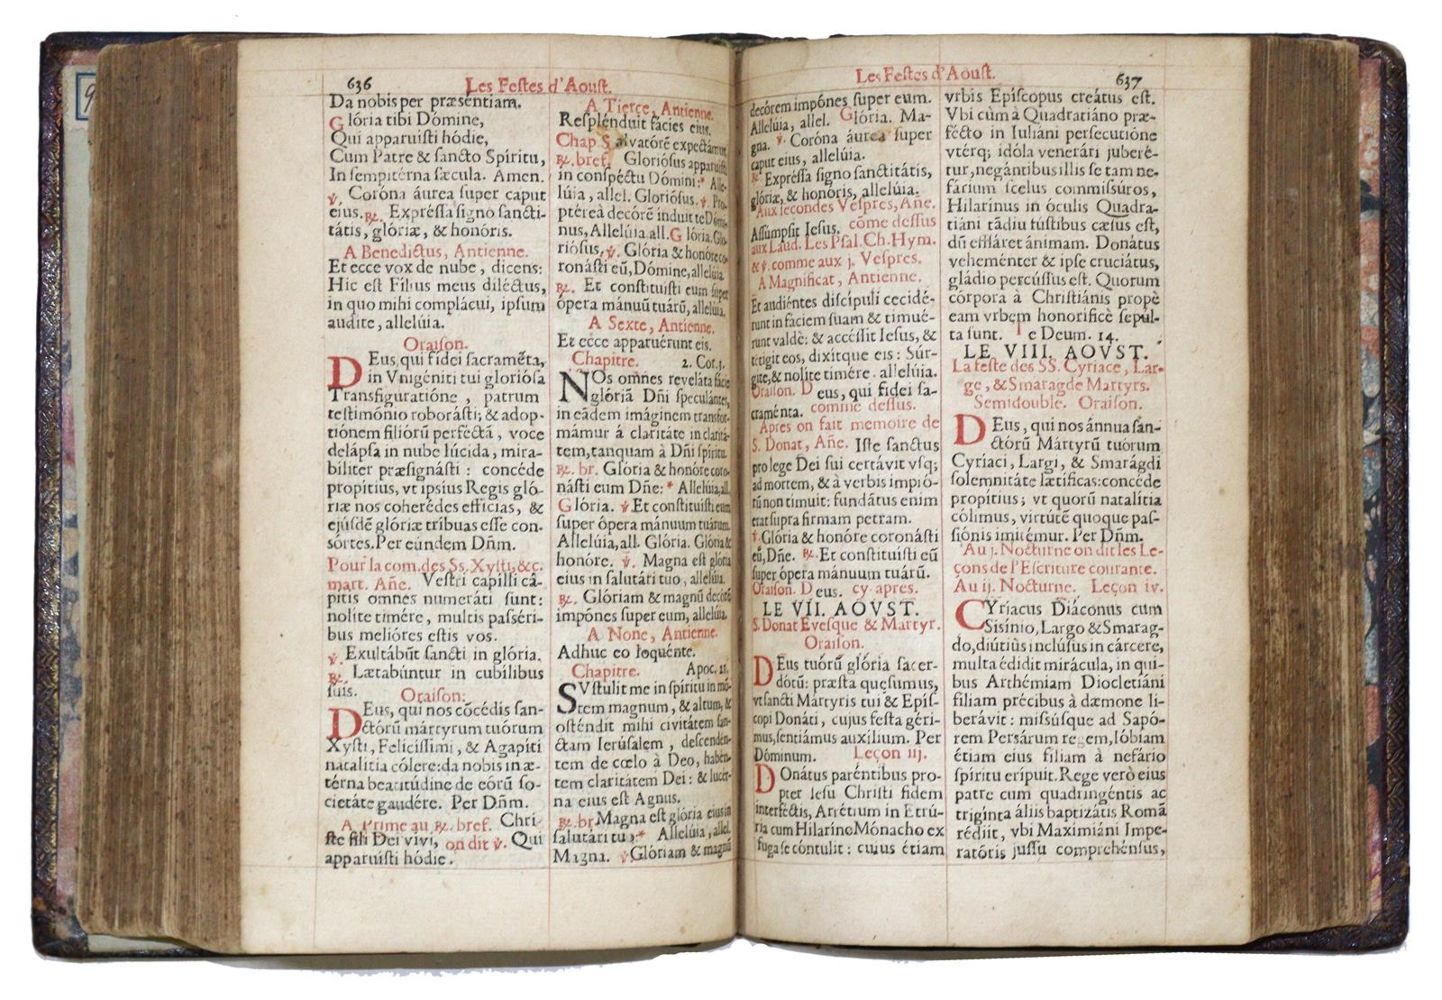 636
Les Festes d'Aoust.
Da nobis per præsentiam.
Glória tibi Dómine,
Qui apparuisti hódie,
Cum Patre & sancto Spíritu,
In sempitérna sæcula. Amen.
℣. Coróna áurea super caput
eius. ℟. Expréssa signo sancti-
tátis, glóriæ, & honóris.
A Benedictus, Antienne.
Et ecce vox de nube, dicens:
Hic est Fílius meus diléctus,
in quo mihi complácui, ipsum
audíte, allelúia.
Oraison.
DEus, qui fídei sacramẽta,
in Vnigéniti tui gloriósa
Transfiguratióne, patrum
testimónio roborásti; & adop-
tiónem filiórũ perféctã, voce
delápsa in nube lúcida, mira-
bíliter præsignásti: concéde
propítius, vt ipsíus Regis gló-
riæ nos coherédes effícias, &
ejúsdẽ glóriæ tríbuas esse con-
sórtes. Per eúndem Dñm.
Pour la com. des Ss. Xysti, &c.
mart. Añe. Vestri capílli cá-
pitis omnes numeráti sunt:
nolíte timére, multis passéri-
bus melióres estis vos.
℣. Exultábũt sancti in glória.
℟. Lætabúntur in cubílibus
suis. Oraison.
DEus, qui nos cõcédis san-
ctórũ mártyrum tuórum
Xysti, Felicíssimi, & Agapíti
natalítia cólere: da nobis in æ-
térna beatitúdine de eórũ so-
cietáte gaudére. Per Dñm.
A Prime au ℟. bref. Chri-
ste fili Dei vivi, on dit ℣. Qui
apparuísti hódie.
A Tierce, Antienne.
Resplénduit fácies eius.
Chap Salvatóré expectámus
℟. bref. Gloriósus apparuísti
in conspéctu Dómini: * Alle-
lúia, allel. Gloriósus. ℣. Pro-
ptéreà decórẽ índuit te Dómi-
nus, Allelúia all. Glória. Glo-
riósus, ℣. Glória & honóre co-
ronásti eũ, Dómine, allelúia.
℟. Et constituísti eum super
ópera mánuũ tuárũ, allelúia.
A Sexte, Antienne.
Et ecce apparuérunt eis.
Chapitre. 2. Cor. 3.
NOs omnes reveláta fácie
glóriã Dñi speculántes,
in eãdem imáginem transfor-
mámur á claritáte in claritá-
tem, tanquam à Dñi spíritu.
℟. br. Glória & honóre coro-
násti eum Dñe: * Allelúia, all.
Glória. ℣ Et constituísti eum
super ópera mánuum tuárum.
Allelúia, all. Glória. Glória &
honóre. ℣. Magna est glória
eius in salutári tuo, allelúia.
℟. Glóriam & magnũ decórẽ
impónes super eum, allelúia.
A None, Antienne.
Adhuc eo loquénte.
Chapitre. Apoc. 21.
SVstulit me in spíritu in mõ-
tem magnum, & altum, &
osténdit mihi civitátem san-
ctam Ierúsalem, descendén-
tem de cœlo à Deo, habén-
tem claritátem Dei: & lucér-
na eius est Agnus.
℟. br. Magna est glória eius in
salutári tuo: * Allelúia, allel.
Magna. ℣ Glóriam & magnũ
Les Festes d'Aoust.
637
decórem impónes super eum.
Allelúia, allel. Glória. Ma-
gna. ℣. Coróna áurea super
caput eius, allelúia.
℟ Expréssa signo sanctitátis,
glóriæ, & honóris, allelúia.
Aux secondes Vespres, Añe.
Assúmpsit Iesus. cõme dessus
aux Laud. Les Psal. Ch. Hym.
& ℣. comme aux j. Vespres.
A Magnificat, Antienne.
Et audiéntes discípuli cecidé-
runt in faciem suam & timué-
runt valdè: & accéssit Iesus, &
tétigit eos, dixítque eis: Súr-
gite, & nolíte timére. allelúia.
Oraison. Deus, qui fídei sa-
craménta. comme dessus.
Apres on fait memoire de
S. Donat, Añe. Iste sanctus
pro lege Dei sui certávit vsq;
ad mortem, & à verbis impió-
rũ non tímuit: fundátus enim
erat supra firmam petram.
℣. Glória & honóre coronásti
eũ, Dñe. ℟. Et constituísti eũ
super ópera mánuum tuárũ.
Oraison. Deus. cy apres.
LE VII. AOVST.
S. Donat Evesque & Martyr.
Oraison.
DEus tuórũ glória sacer-
dótũ: præsta quęsumus,
vt sancti Mártyris tui & Epís-
copi Donáti, cujus festa géri-
mus, sentiámus auxílium. Per
Dóminum. Leçon iij.
DOnátus paréntibus pro-
pter Iesu Christi fidem
interféctis, Arrétium in Etrú-
ria cum Hilaríno Mónacho ex
fuga se cóntulit: cuius étiam
vrbis Epíscopus creátus est.
Vbi cùm à Quadratiáno præ-
fécto in Iuliáni persecutióne
vtérq; idóla venerári juberé-
tur, negántibus illis se tam ne-
fárium scelus commissúros,
Hilarínus in óculis Quadra-
tiáni tãdiu fústibus cæsus est,
dũ effláret ánimam. Donátus
veheménter & ipse cruciátus,
gládio percússus est. Quorum
córpora à Christiánis propè
eam vrbem honorificè sepúl-
ta sunt. Te Deum. 14.
LE VIII. AOVST.
La feste des SS. Cyriace, Lar-
ge, & Smaragde Martyrs.
Semidouble. Oraison.
DEus, qui nos ánnua san-
ctórũ Mártyrũ tuórum
Cyríaci, Largi, & Smarágdi
solemnitáte lætíficas: concéde
propítius; vt quorũ natalítia
cólimus, virtútẽ quoque pas-
siónis imitémur. Per Dñm.
Au j. Nocturne on dit les Le-
çons de l'Escriture courante.
Au ij. Nocturne. Leçon iv.
CYríacus Diáconus cum
Sisínio, Largo & Smarag-
do, diútiùs inclúsus in cárcere,
multa édidit mirácula, in qui-
bus Arthémiam Diocletiáni
fíliam précibus à dæmone li-
berávit: missúsque ad Sapó-
rem Persárum regem, Ióbiam
étiam eius fíliam à nefário
spíritu erípuit. Rege verò eius
patre cum quadringéntis ac
trigínta áliis baptizátis Romã
rédiit, vbi Maximiáni Impe-
ratóris jussu comprehénsus,